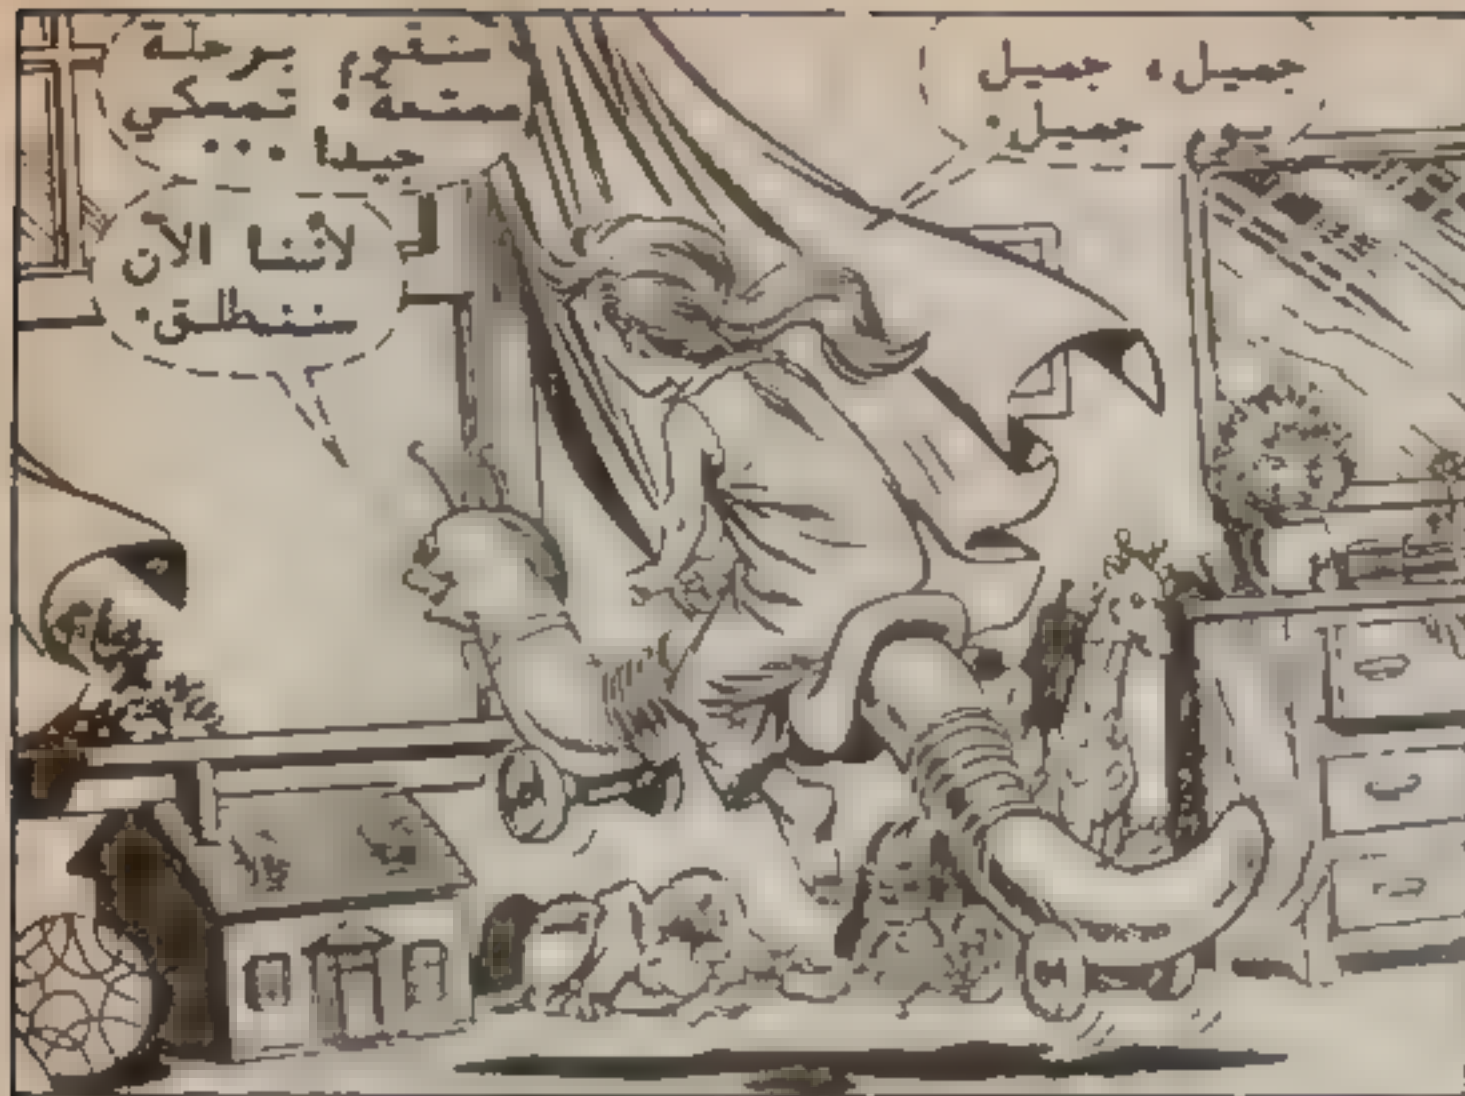 جميل، جميل
جميل.
سنقوم برحلة
ممتعة. تمسكي
جيدا ...
لأننا الآن
سننطلق.